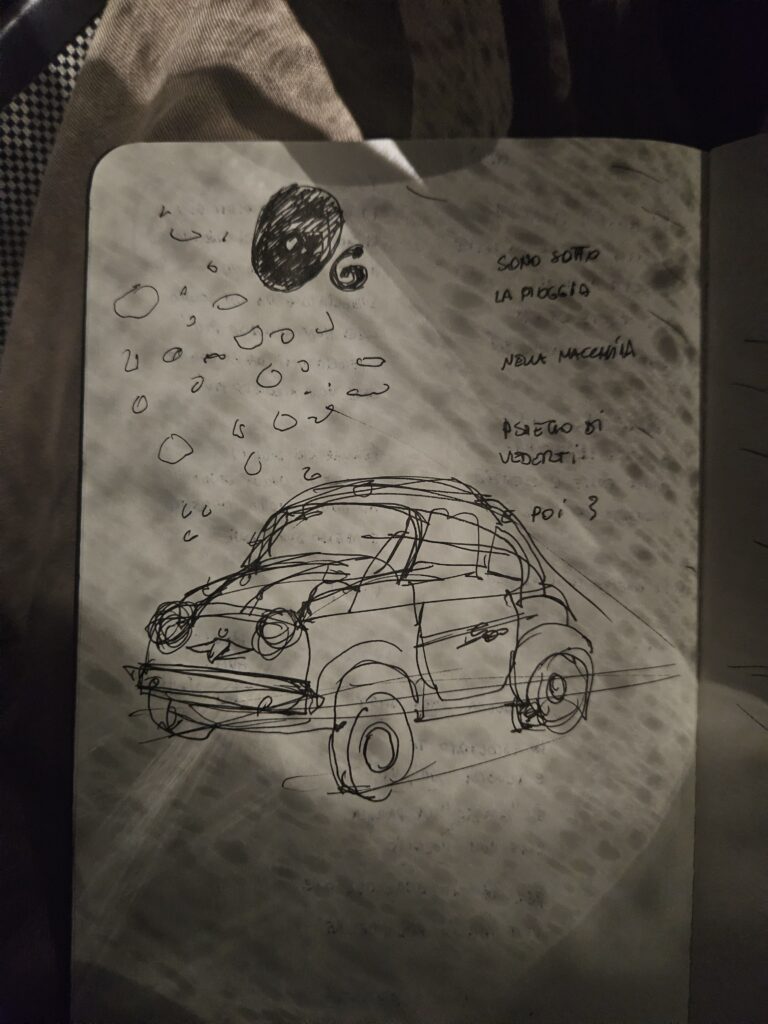 G
SONO SOTTO
LA PIOGGIA
NELLA MACCHINA
ASPETTO DI
VEDERTI
E POI